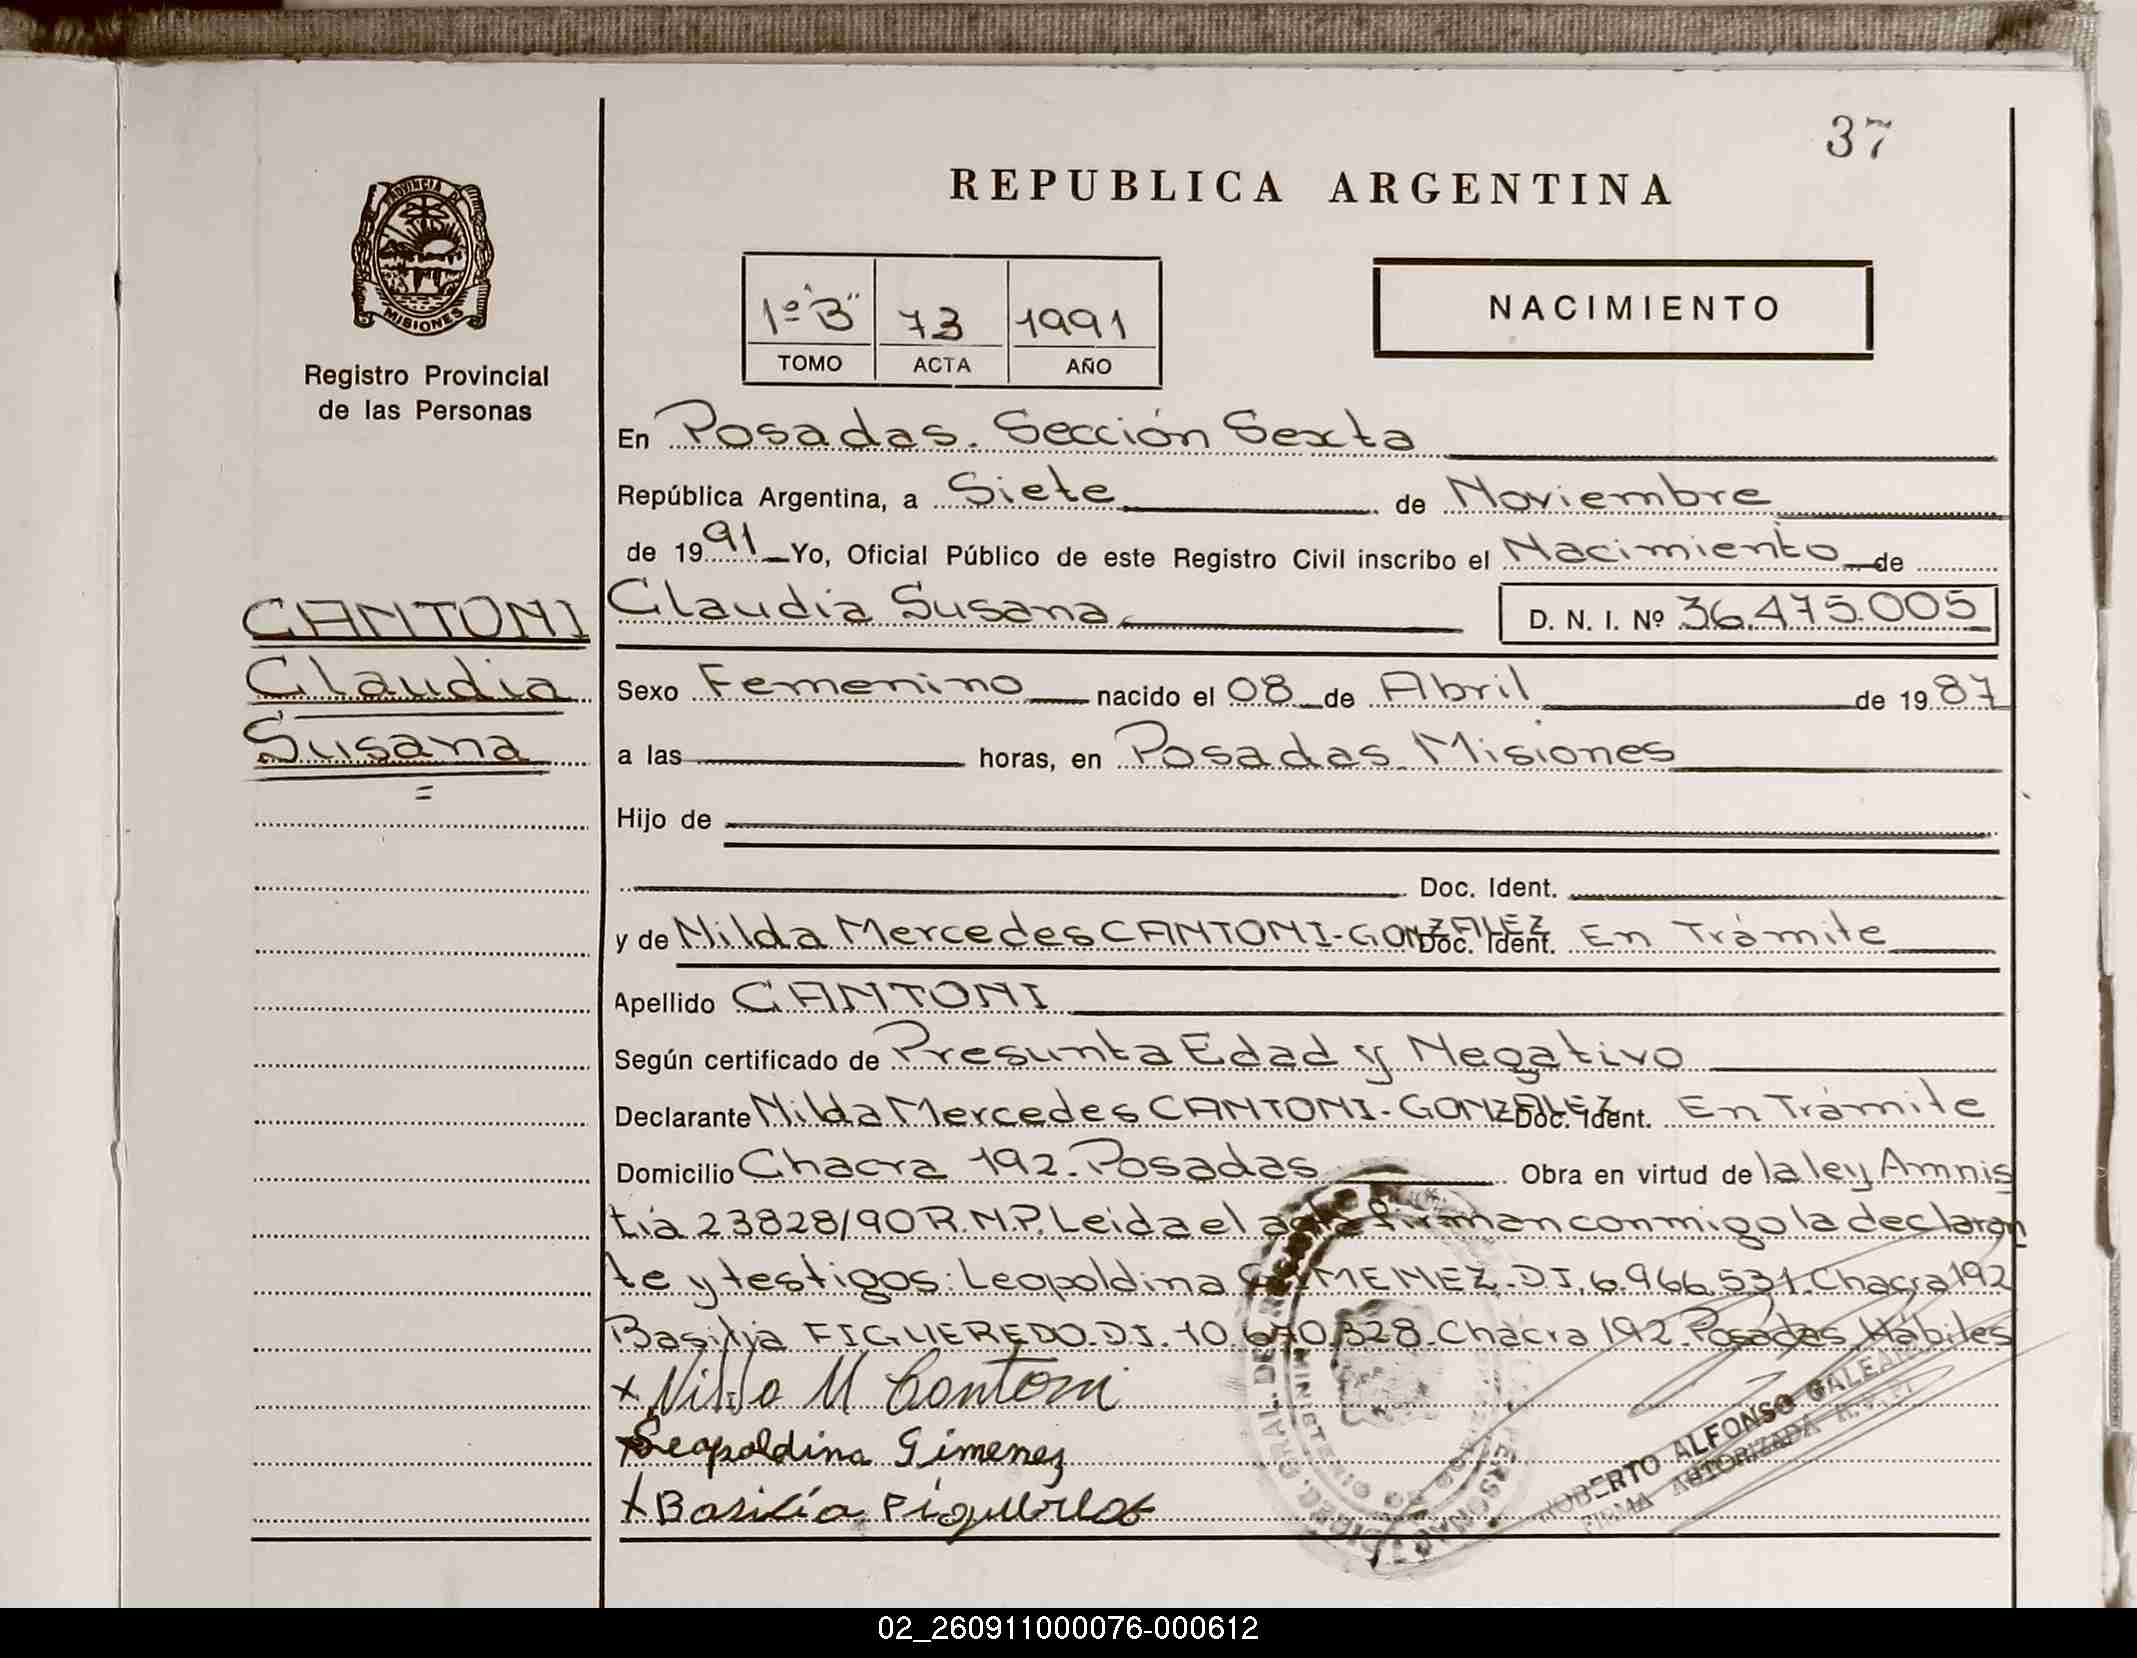 37
REPUBLICA ARGENTINA
PROVINCIA DE
MISIONES
Registro Provincial
de las Personas
1º "B" 73 1991
TOMO ACTA AÑO
NACIMIENTO
En Posadas. Sección Sexta
República Argentina, a Siete de Noviembre
de 1991 Yo, Oficial Público de este Registro Civil inscribo el Nacimiento de
CANTONI
Claudia
Susana
Claudia Susana D. N. I. Nº 36.475.005
Sexo Femenino nacido el 08 de Abril de 1987
a las horas, en Posadas. Misiones
Hijo de
Doc. Ident.
y de Nilda Mercedes CANTONI-GONZALEZ Doc. Ident. En Trámite
Apellido CANTONI
Según certificado de Presunta Edad y Negativo
Declarante Nilda Mercedes CANTONI-GONZALEZ Doc. Ident. En Trámite
Domicilio Chacra 192. Posadas Obra en virtud de la ley Amnis
tía 23828/90 R.N.P. Leida el acta firman conmigo la declaran
te y testigos: Leopoldina GIMENEZ. D.I. 6.966.531. Chacra 192
Basilia FIGUEREDO. D.I. 10.670.328. Chacra 192. Posadas. Hábiles
x Nilda M Cantoni
x Leopoldina Gimenez
x Basilia Figueredo
ROBERTO ALFONSO GALEANO
FIRMA AUTORIZADA
02_260911000076-000612